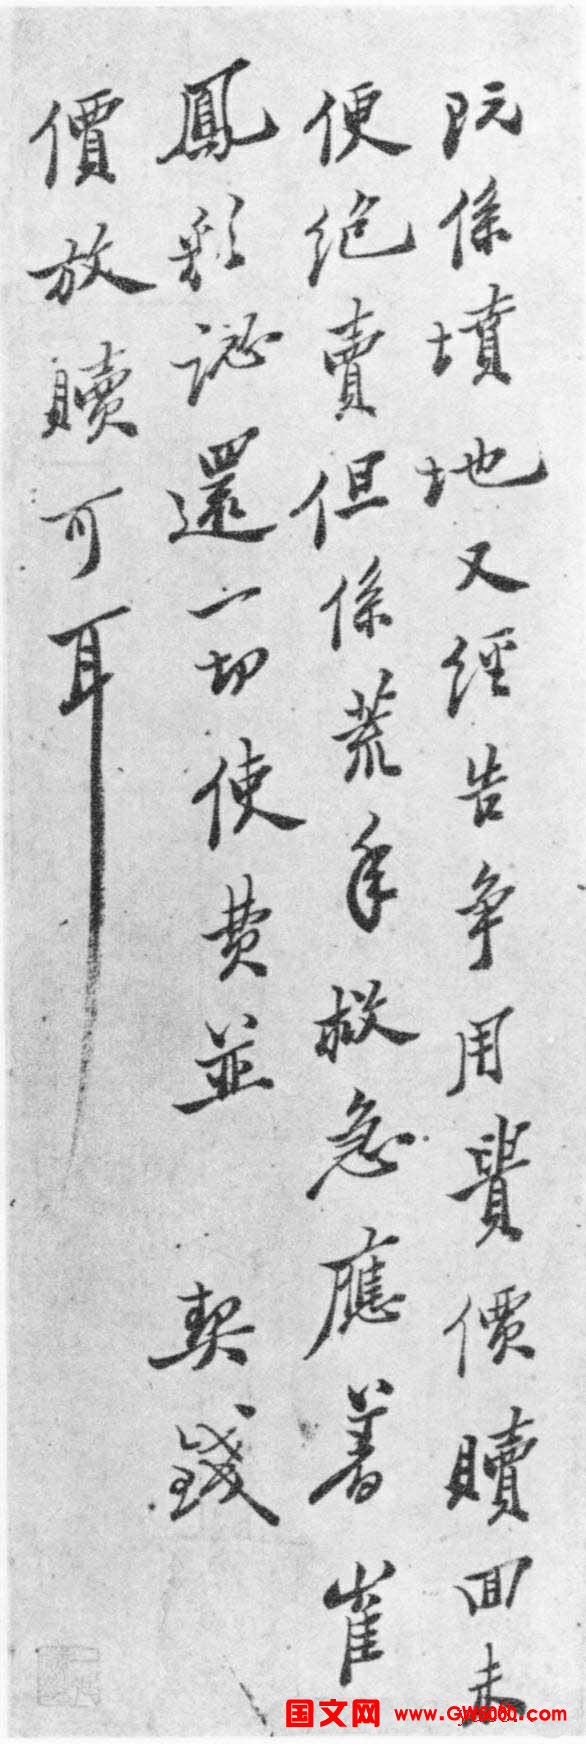 既係墳地又經告争用貴價贖回未
便絶賣但係荒年救急應着崔
鳳彩認還一切使費並 契錢
價放贖可耳
国文网 www.GW6000.com